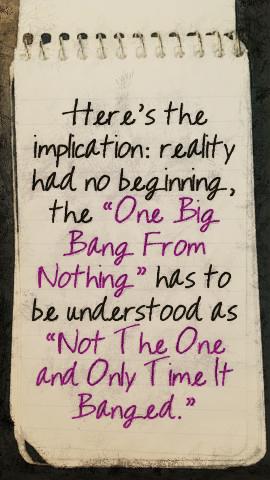 Here's the
implication: reality
had no beginning,
the “One Big
Bang From
Nothing” has to
be understood as
“Not The One
and Only Time It
Banged.”